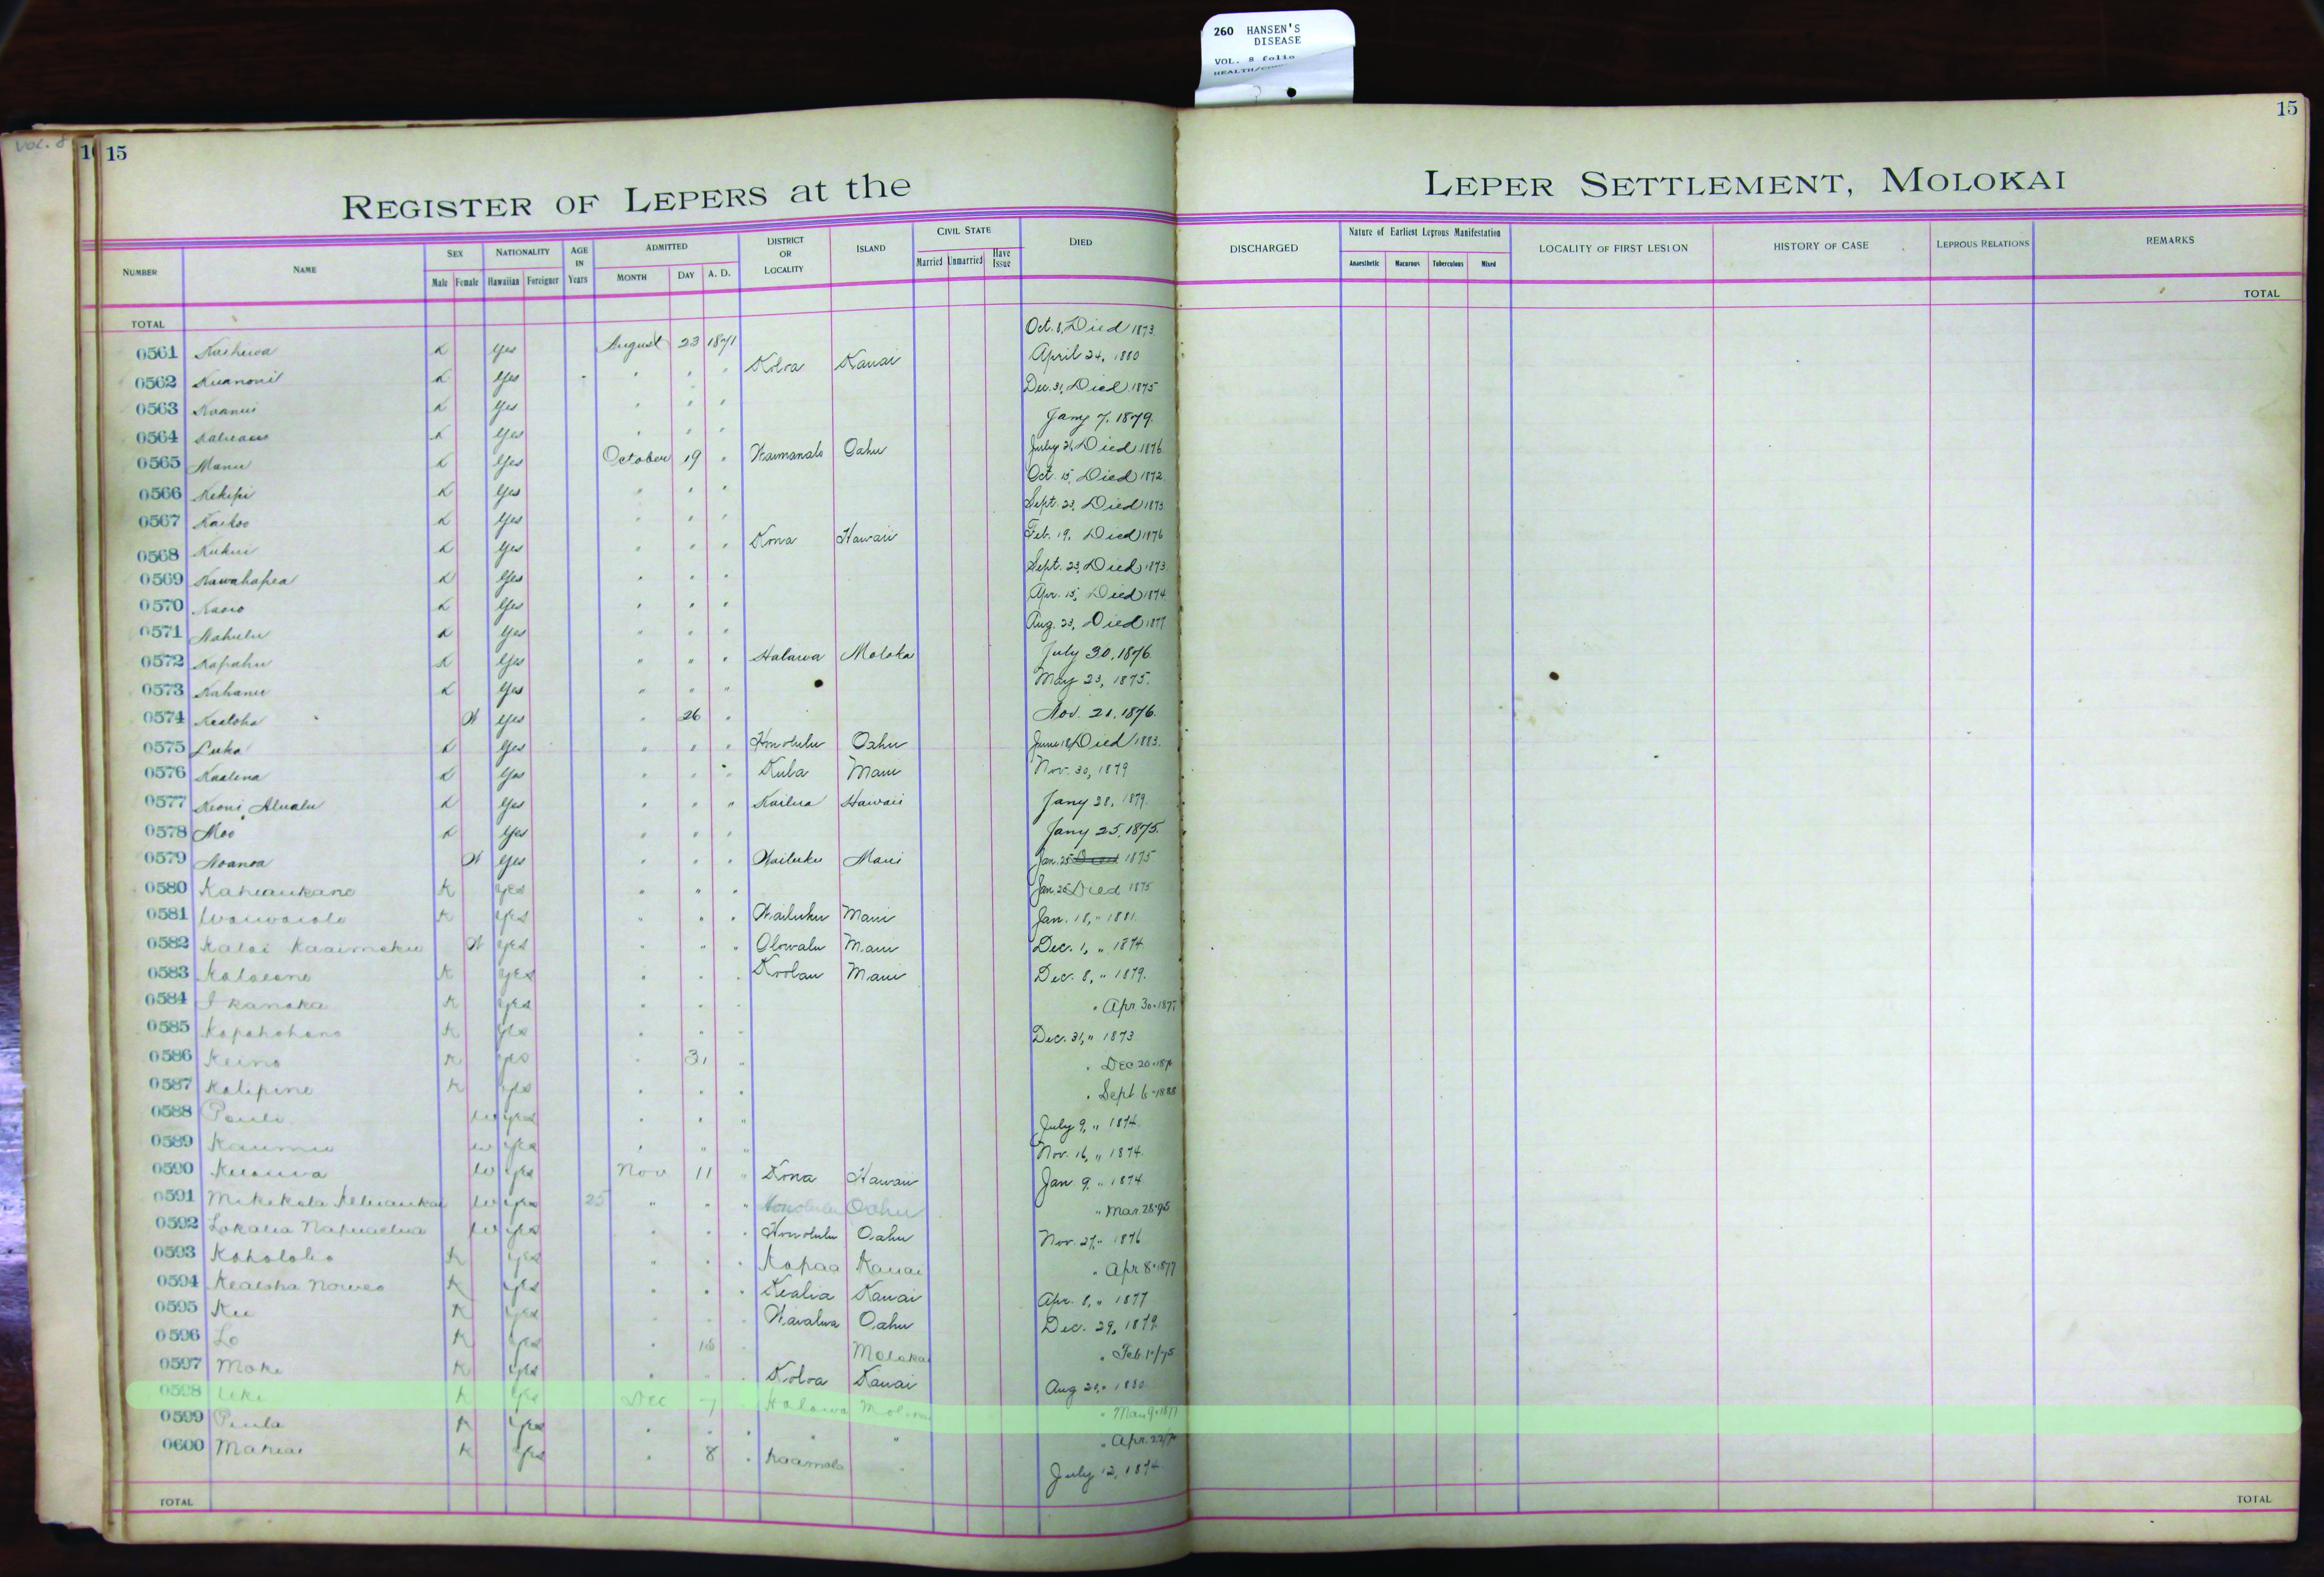 260 HANSEN'S
DISEASE
VOL. 8 folio
VOL. 8
15
15
REGISTER OF LEPERS at the
LEPER SETTLEMENT, MOLOKAI
NUMBER NAME SEX Male Female NATIONALITY Hawaiian Foreigner AGE IN Years ADMITTED MONTH DAY A. D. DISTRICT OR LOCALITY ISLAND CIVIL STATE Married Unmarried Have Issue DIED
DISCHARGED Nature of Earliest Leprous Manifestation Anaesthetic Macurous Tuberculous Mixed LOCALITY OF FIRST LESION HISTORY OF CASE LEPROUS RELATIONS REMARKS
TOTAL TOTAL
0561 K Yes August 23 1871 Oct. 8, Died 1873
0562 K Yes " " " Koloa Kauai April 24, 1880
0563 K Yes " " " Dec. 31, Died 1875
0564 K Yes " " " Jany 7, 1879.
0565 Manu K Yes October 19 " Waimanalo Oahu July 21, Died 1876
0566 Kekipi K Yes " " " Oct. 15, Died 1872
0567 Kaikoo K Yes " " " Sept. 23, Died 1873
0568 Kukui K Yes " " " Kona Hawaii Feb. 19, Died 1876
0569 Kawahapea K Yes " " " Sept. 23, Died 1873
0570 K Yes " " " Apr. 15, Died 1874
0571 Nahulu K Yes " " " Aug. 23, Died 1877
0572 Kapahu K Yes " " " Halawa Moloka July 30, 1876
0573 Kahanu K Yes " " " May 23, 1875.
0574 Kealoha W Yes " 26 " Nov. 21, 1876.
0575 Luka K Yes " " " Honolulu Oahu June 18, Died 1883.
0576 Kaalena K Yes " " " Kula Maui Nov. 30, 1879
0577 Keoni Alualu K Yes " " " Kailua Hawaii Jany 28, 1879.
0578 Moo K Yes " " " Jany 25, 1875.
0579 Noanoa W Yes " " " Wailuku Maui Jan. 25 Died 1875
0580 Kaheaukane K Yes " " " Jan. 26 Died 1875
0581 Waiwaiole K Yes " " " Wailuku Maui Jan. 18, " 1881.
0582 Kalai Kaaimoku W Yes " " " Olowalu Maui Dec. 1, " 1874
0583 K Yes " " " Koolau Maui Dec. 8, " 1879.
0584 Ikanaka K Yes " " " " Apr 30 - 1877
0585 K Yes " " " Dec. 31, " 1873
0586 Keino K Yes " 31 " " Dec 20
0587 Kalipine K Yes " " " " Sept 6 - 1888
0588 Pauli W Yes " " " July 9, " 1874
0589 Kaumu W Yes " " " Nov. 16, " 1874.
0590 W Yes Nov 11 " Kona Hawaii Jan 9, " 1874
0591 Mikekala W Yes 25 " " " Honolulu Oahu " Mar. 28 - 75
0592 W Yes " " " Honolulu Oahu Nov. 27, " 1876
0593 K Yes " " " Kapaa Kauai " Apr 8 - 1877
0594 Kealoha K Yes " " " Kealia Kauai Apr. 8, " 1877
0595 Ku K Yes " " " Waialua Oahu Dec. 29, 1879.
0596 Lo K Yes " 18 " Molokai
0597 Moke K Yes " " " Koloa Kauai Aug 20, " 1880
0598 Uki K Yes Dec 7 " Halawa Molokai " Mar 9 - 1877
0599 Paula K Yes " " " " "
0600 Mahiai K Yes " 8 " Kaamola " July 12, 1874
TOTAL TOTAL